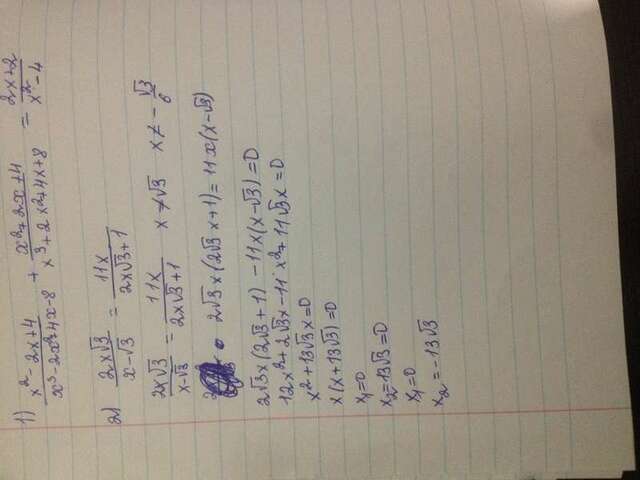 1) (x² - 2x + 4)/(x³ - 2x² + 4x - 8) + (x² + 2x + 4)/(x³ + 2x² + 4x + 8) = (2x + 2)/(x² - 4)
2) (2x√3)/(x - √3) = (11x)/(2x√3 + 1)
(2x√3)/(x - √3) = (11x)/(2x√3 + 1) x ≠ √3 x ≠ - √3/6
2√3x(2√3x + 1) = 11x(x - √3)
2√3x(2√3 + 1) - 11x(x - √3) = 0
12x² + 2√3x - 11x² + 11√3x = 0
x² + 13√3x = 0
x(x + 13√3) = 0
x₁ = 0
x₂ = 13√3 = 0
x₁ = 0
x₂ = -13√3